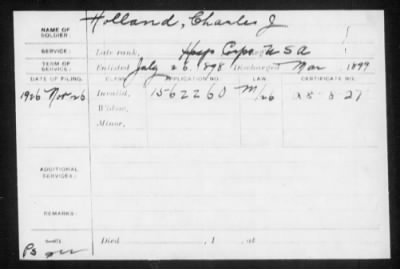 Holland, Charles J
NAME OF SOLDIER:
SERVICE: Late rank, Hosp Corps U S A
TERM OF SERVICE: Enlisted July 26, 1898 Discharged Mar , 1899
DATE OF FILING. CLASS. APPLICATION NO. LAW. CERTIFICATE NO.
1926 Nov 26 Invalid, 1562260 M/26
Widow,
Minor,
ADDITIONAL SERVICES:
REMARKS:
Died , 1 , at